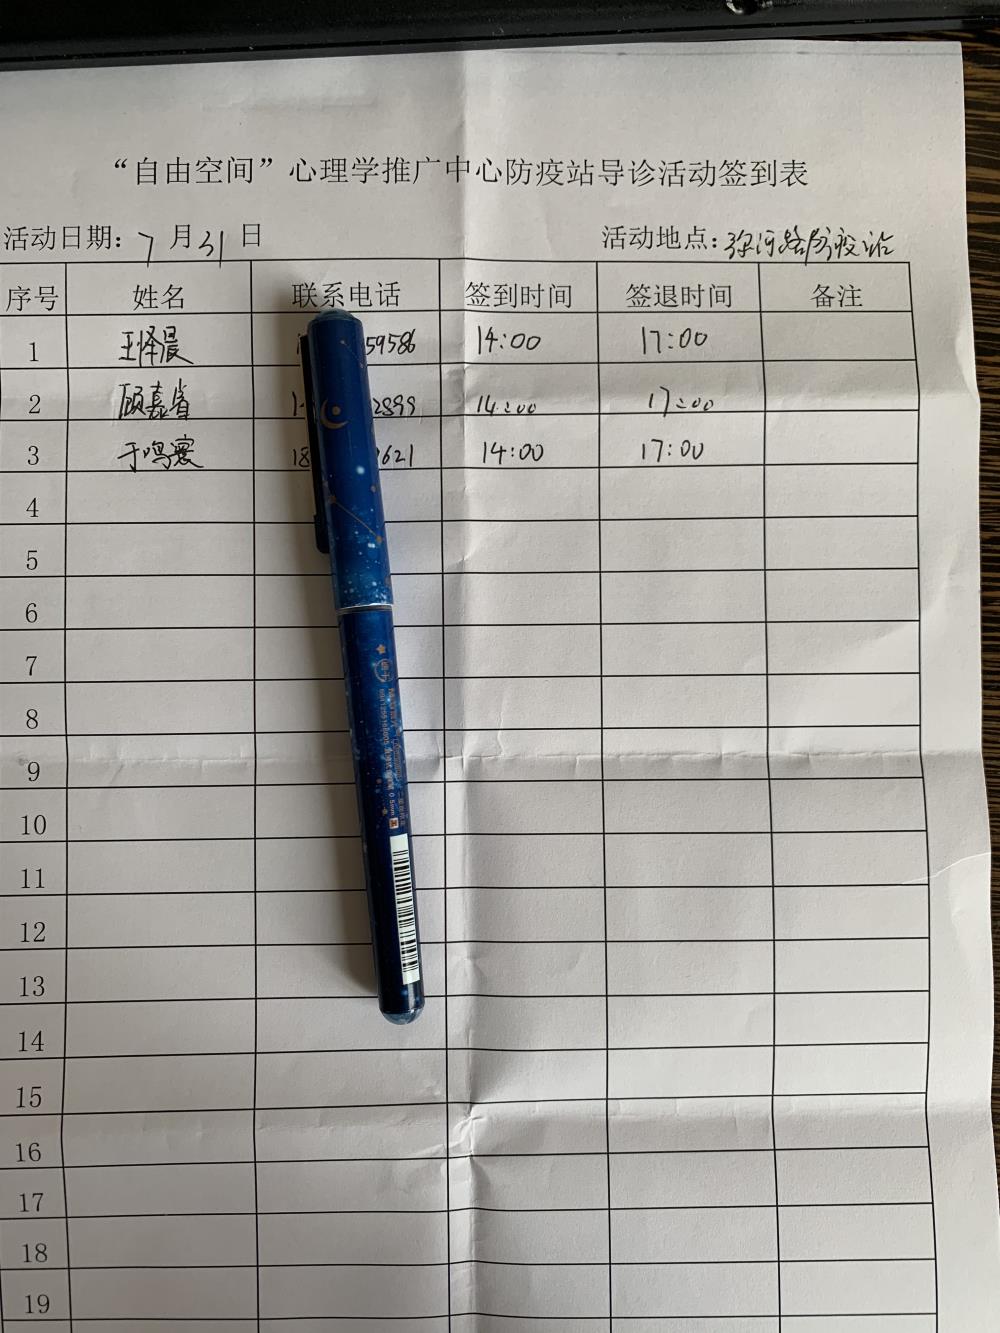 “自由空间”心理学推广中心防疫站导诊活动签到表
活动日期：7月31日 活动地点：弥河路防疫站
序号 姓名 联系电话 签到时间 签退时间 备注
1 王怿晨 59586 14:00 17:00
2 顾嘉省 2899 14:00 17:00
3 于鸣寰 18 1621 14:00 17:00
4
5
6
7
8
9
10
11
12
13
14
15
16
17
18
19